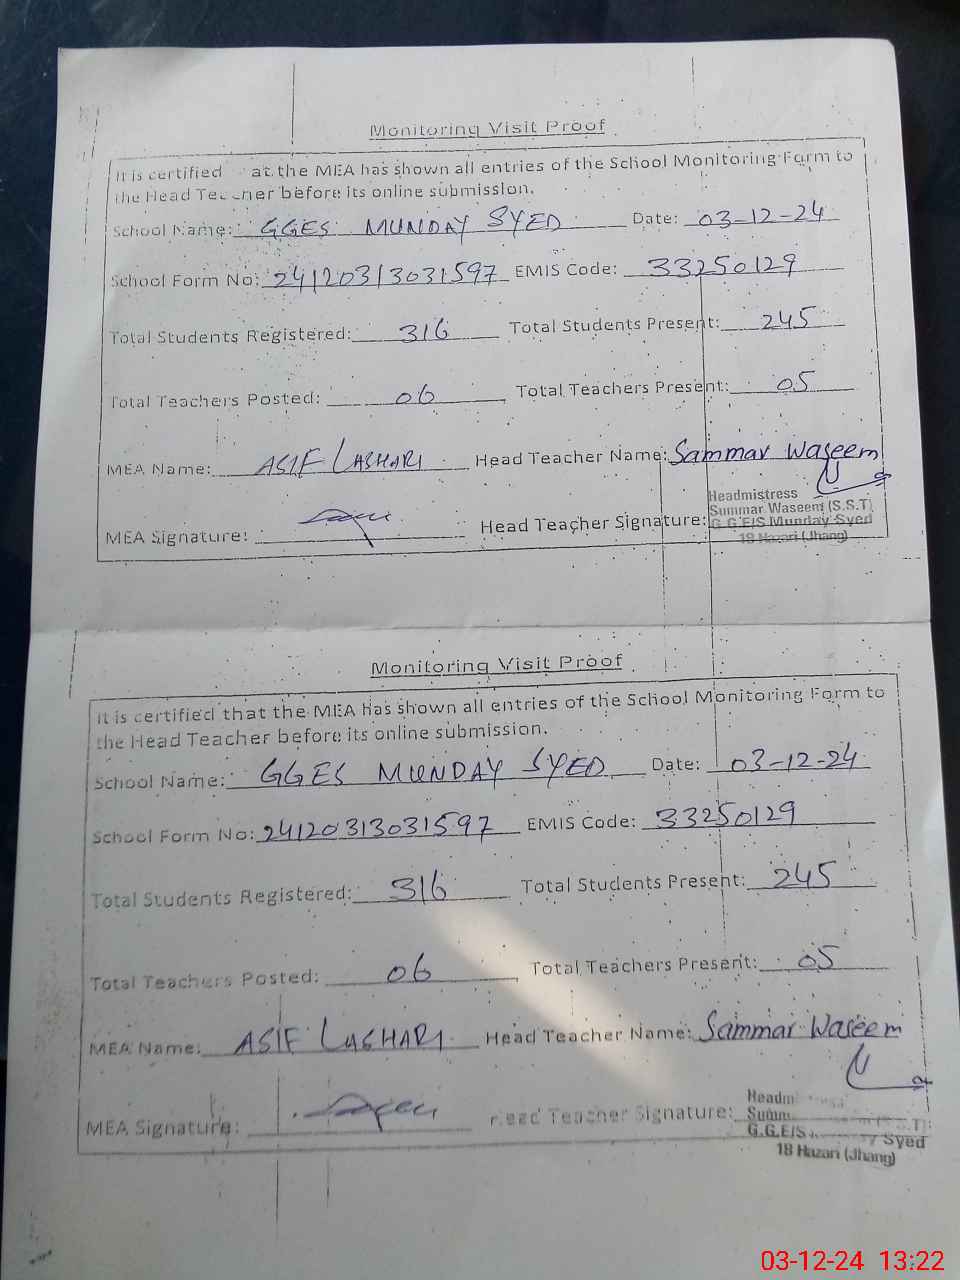 Monitoring Visit Proof
It is certified at the MEA has shown all entries of the School Monitoring Form to
the Head Teacher before its online submission.
School Name: GGES MUNDAY SYED Date: 03-12-24
School Form No: 24120313031597 EMIS Code: 33250129
Total Students Registered: 316 Total Students Present: 245
Total Teachers Posted: 06 Total Teachers Present: 05
MEA Name: ASIF LASHARI Head Teacher Name: Sammar Waseem
MEA Signature: Head Teacher Signature:
Headmistress
Summar Waseem (S.S.T)
G.G.E/S Munday Syed
18 Hazari (Jhang)
Monitoring Visit Proof
It is certified that the MEA has shown all entries of the School Monitoring Form to
the Head Teacher before its online submission.
School Name: GGES MUNDAY SYED Date: 03-12-24
School Form No: 24120313031597 EMIS Code: 33250129
Total Students Registered: 316 Total Students Present: 245
Total Teachers Posted: 06 Total Teachers Present: 05
MEA Name: ASIF LASHARI Head Teacher Name: Sammar Waseem
MEA Signature: Head Teacher Signature:
G.G.E/S Syed
18 Hazari (Jhang)
03-12-24 13:22